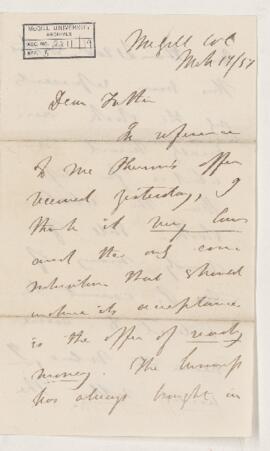 McGILL UNIVERSITY
ARCHIVES
ACC. NO. 2211
REF.
McGill Col
Mch 17/57
Dear Father
In reference
to Mr offer
received yesterday, I
think it very low
and the only con
sideration that should
induce its acceptance
is the offer of ready
money. The business
has always brought in